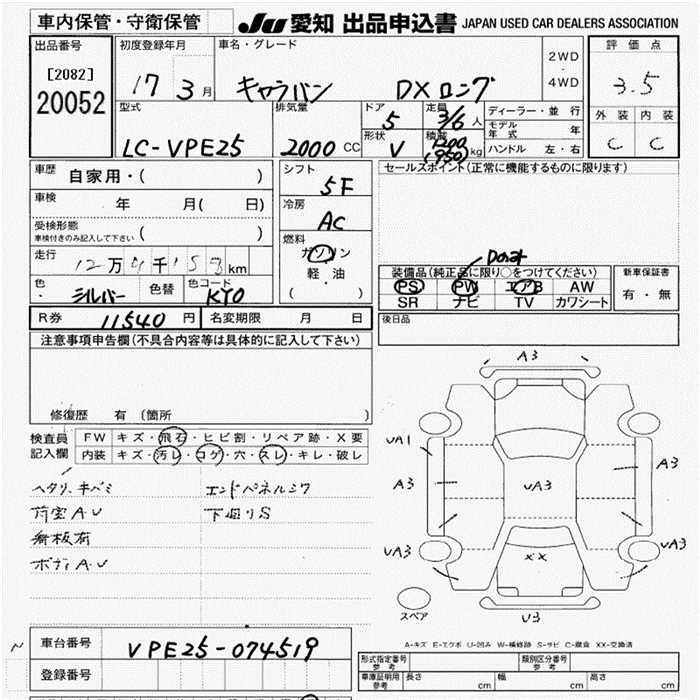 車内保管・守衛保管
JU 愛知 出品申込書 JAPAN USED CAR DEALERS ASSOCIATION
出品番号
[2082]
20052
初度登録年月
17 3月
車名・グレード
キャラバン DXロング
2WD
4WD
評価点
3.5
外装 内装
C C
型式
LC-VPE25
排気量
2000 CC
ドア
5
形状
V
定員
3/6人
積載
1200
(950)kg
ディーラー・並行
モデル年式 年
ハンドル 左・右
車歴
自家用・( )
車検
年 月( 日)
受検形態
車検付きのみ記入して下さい ( )
走行
12万 千153km
色
シルバー
色替
色コード
KY0
シフト
5F
冷房
AC
燃料
ガソリン
軽・油
( )
セールスポイント(正常に機能するものに限ります)
装備品(純正品に限り○をつけてください)
PS PW エアB AW
SR ナビ TV カワシート
新車保証書
有・無
R券 11540円
名変期限 月 日
後日品
注意事項申告欄(不具合内容等は具体的に記入して下さい)
修復歴 有 (箇所 )
検査員
記入欄
FW キズ・飛石・ヒビ割・リペア跡・X要
内装 キズ・汚レ・コゲ・穴・スレ・キレ・破レ
ヘタリ、キバミ
荷室AU
看板有
ボディAU
エンドパネルシワ
下廻りS
A3
UA1
A3
UA3
A3
UA3
UA3
XX
U3
スペア
A-キズ E-エクボ U-凹み W-補修跡 S-サビ C-腐食 XX-交換済
車台番号
VPE25-074519
登録番号
形式指定番号
参考
類別区分番号
参考
車庫証明用
参考
長さ cm 幅 cm 高さ cm